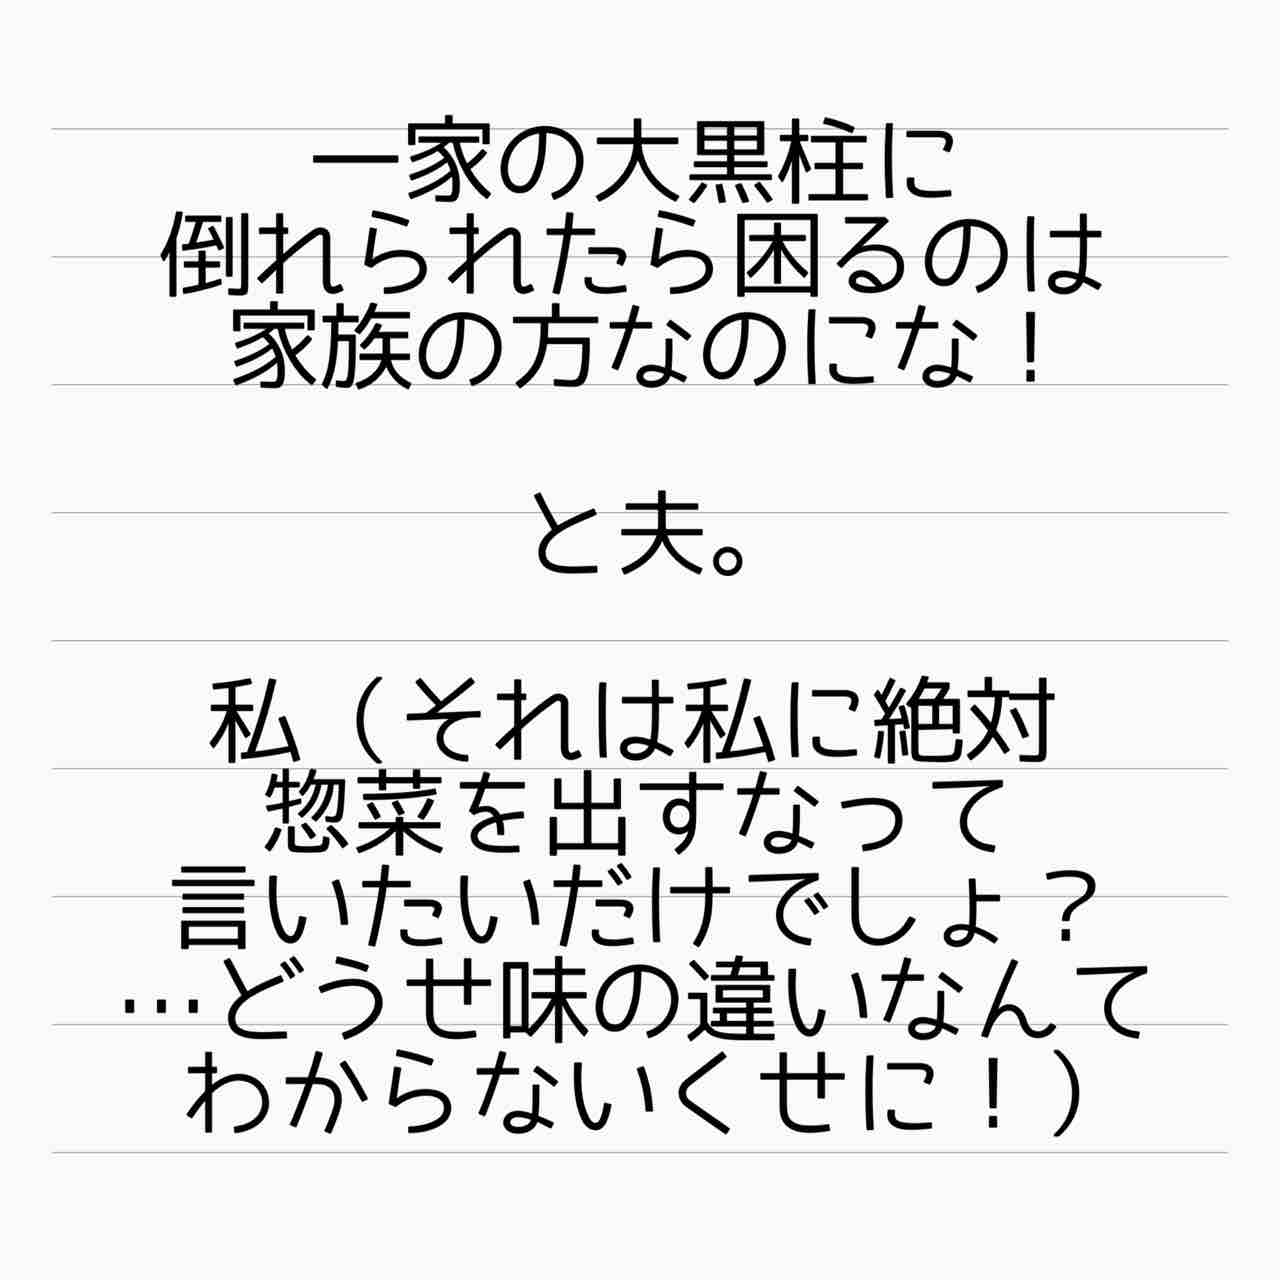 一家の大黒柱に
倒れられたら困るのは
家族の方なのにな！
と夫。
私（それは私に絶対
惣菜を出すなって
言いたいだけでしょ？
…どうせ味の違いなんて
わからないくせに！）